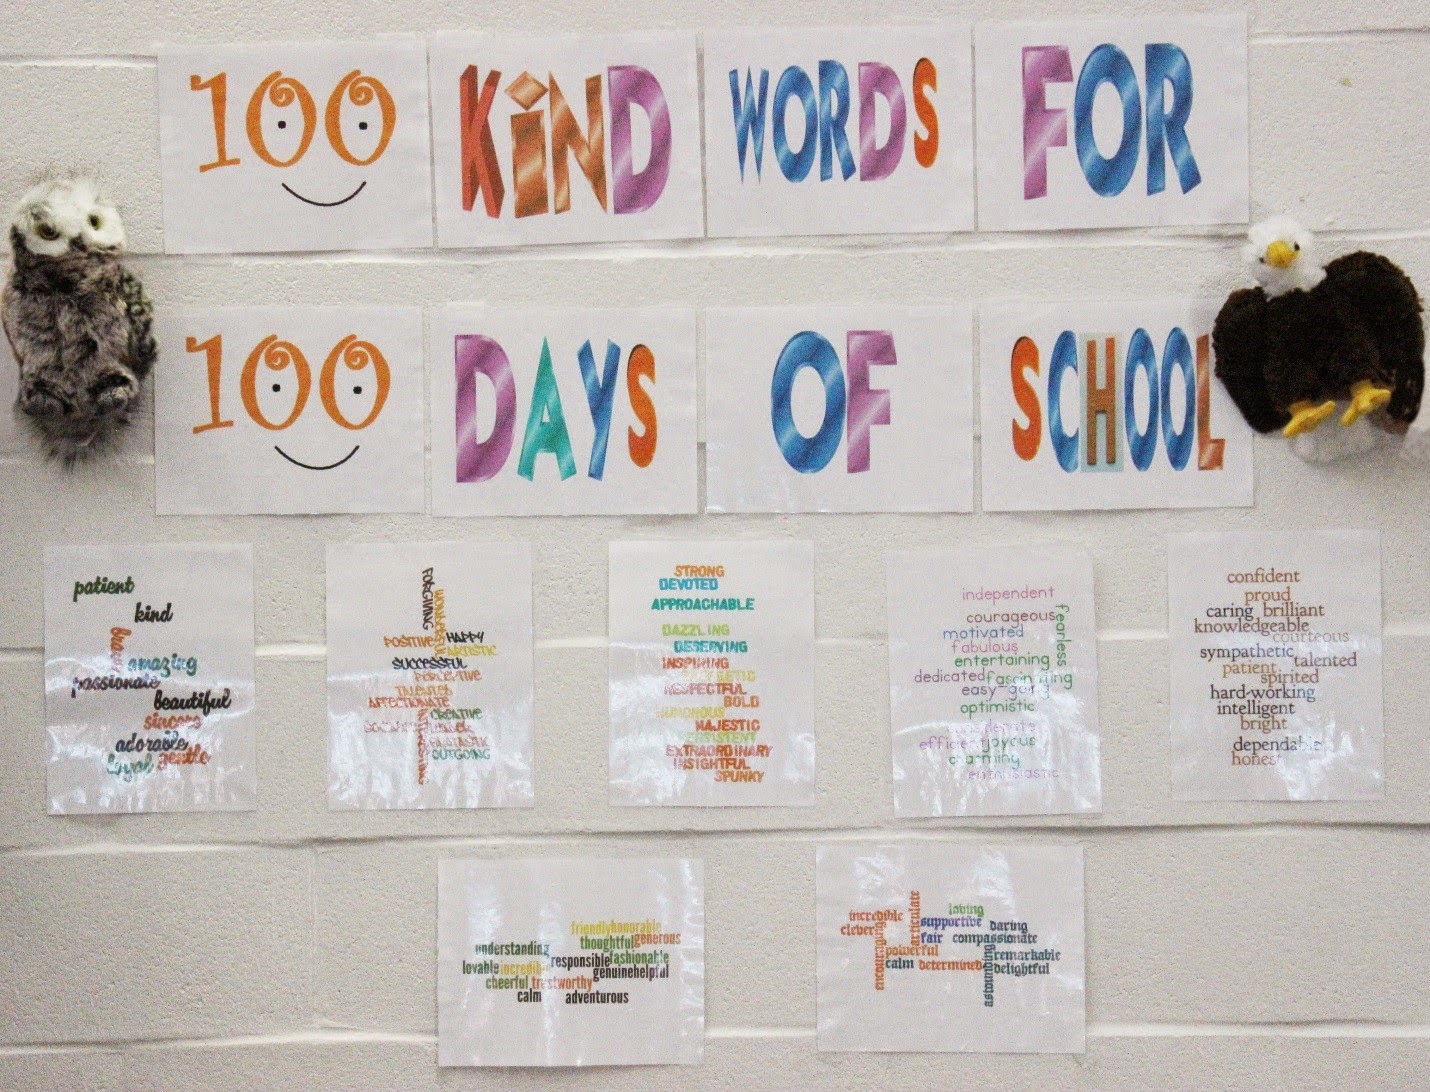 100 KiND WORDS FOR
100 DAYS OF SCHOOL
patient
kind
brave
amazing
passionate
beautiful
sincere
adorable
loyal gentle
FORGIVING
POSITIVE HAPPY
ARTISTIC
SUCCESSFUL
TALENTED
AFFECTIONATE
CREATIVE
FANTASTIC
OUTGOING
INTERESTING
STRONG
DEVOTED
APPROACHABLE
DAZZLING
DESERVING
INSPIRING
RESPECTFUL
BOLD
HUMOROUS
MAJESTIC
EXTRAORDINARY
INSIGHTFUL
SPUNKY
independent
courageous
fearless
motivated
fabulous
entertaining
dedicated fascinating
easy-going
optimistic
efficient joyous
charming
enthusiastic
confident
proud
caring brilliant
knowledgeable
courteous
sympathetic
patient talented
spirited
hard-working
intelligent
bright
dependable
honest
friendly honorable
understanding thoughtful generous
lovable incredible responsible fashionable
cheerful trustworthy genuine helpful
calm adventurous
incredible articulate loving
clever supportive daring
encouraging fair compassionate
powerful remarkable
calm determined astounding delightful